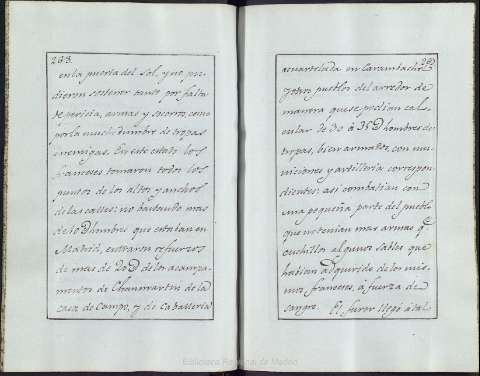 283.
en la puerta del Sol, y no pu-
dieron sostener tanto por falta
de pericia, armas y socorro, como
por la muchedumbre de tropas
enemigas. En este estado los
franceses tomaron todos los
puntos de los altos y anchos
de las calles: no bastando mas
de 10 D hombres que estaban en
Madrid, entraron refuerzos
de mas de 20 D de los acampa-
mentos de Chanmartin de la
casa de Campo, y de Caballeria
acuartelada en Caramanchel
y otros pueblos del arredor de
manera que se podian cal-
cular de 30 à 35 D hombres de
tropas, bien armados, con mu-
niciones y artilleria correspon-
dientes: asi combatian con
una pequeña parte del pueblo
que no tenian mas armas q.e
cuchillos algunos sables que
habian adquirido de los mis-
mos franceses, à fuerza de
sangre. El furor llegó à tal
Biblioteca Regional de Madrid